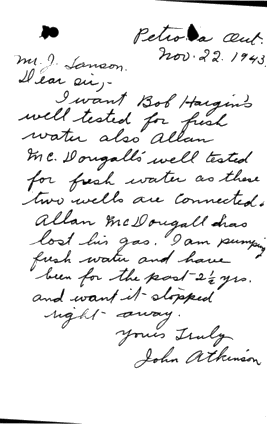 Petrolia Ont.
Nov. 22. 1943.
Mr. J. Lanson.
Dear sir,-
I want Bob Hargin's
well tested for fresh
water also Allan
Mc. Dougall's well tested
for fresh water as these
two wells are connected.
Allan McDougall has
lost his gas. I am pumping
fresh water and have
been for the past 2½ yrs.
and want it stopped
right away.
Yours Truly
John Atkinson